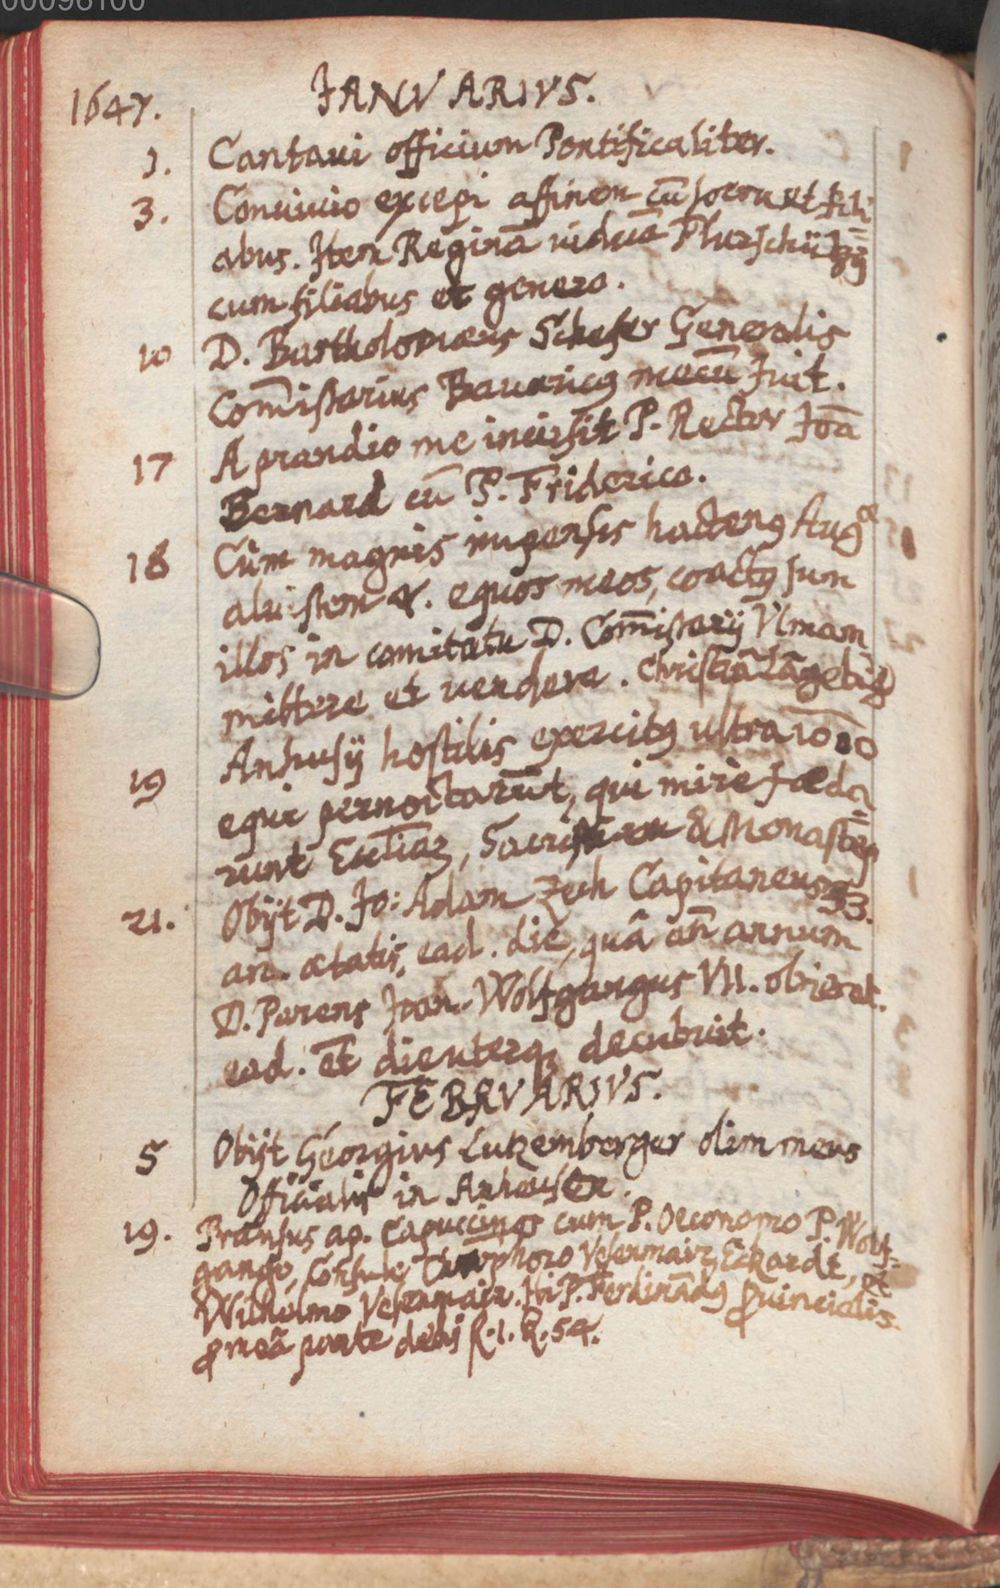 00096100
1647. IANVARIVS.
1. Cantaui officium Pontificaliter.
3. Conuiuio excepi affinem cū socru et fili-
abus. Item Reginā uiduā
cum filiabus et genero.
10 D. Bartholomæus Schefer Generalis
Com̄issarius Bauaricus mecū fuit.
17 A prandio me inuisit P. Rector Joā
Bernard cū P. Friderico.
18 Cùm magnis impensis hactenus Augæ
aluissem 4. equos meos, coactus sum
illos in comitatu D. Com̄issarij Vlmam
mittere et uendere. Christiā
19 Anhusij hostilis exercitus ultra 1000
equi pernoctarūt, qui mire fœda-
runt Eccl̄iaz, & Monast
21. Obijt D. Jo: Adam Zech Capitaneus 33.
an. ætatis, ead. die, quâ an̄ annum
D. Parens Joan. Wolfgangus VII. obierat.
ead. et̄ die uterq; decubuit.
FEBRVARIVS.
5 Obijt Georgius Lutzemberger olim meus
Officialis in Anhausen.
19. Pransus ap. Capuccinos cum P. Oeconomo P. Wolf-
gango, Consule Vesenmair, Eckardt, et
Wilhelmo Vesenmair. Hi P. Ferdinādus Prouincialis.
pro meā parte dedi R. 1. K. 54.